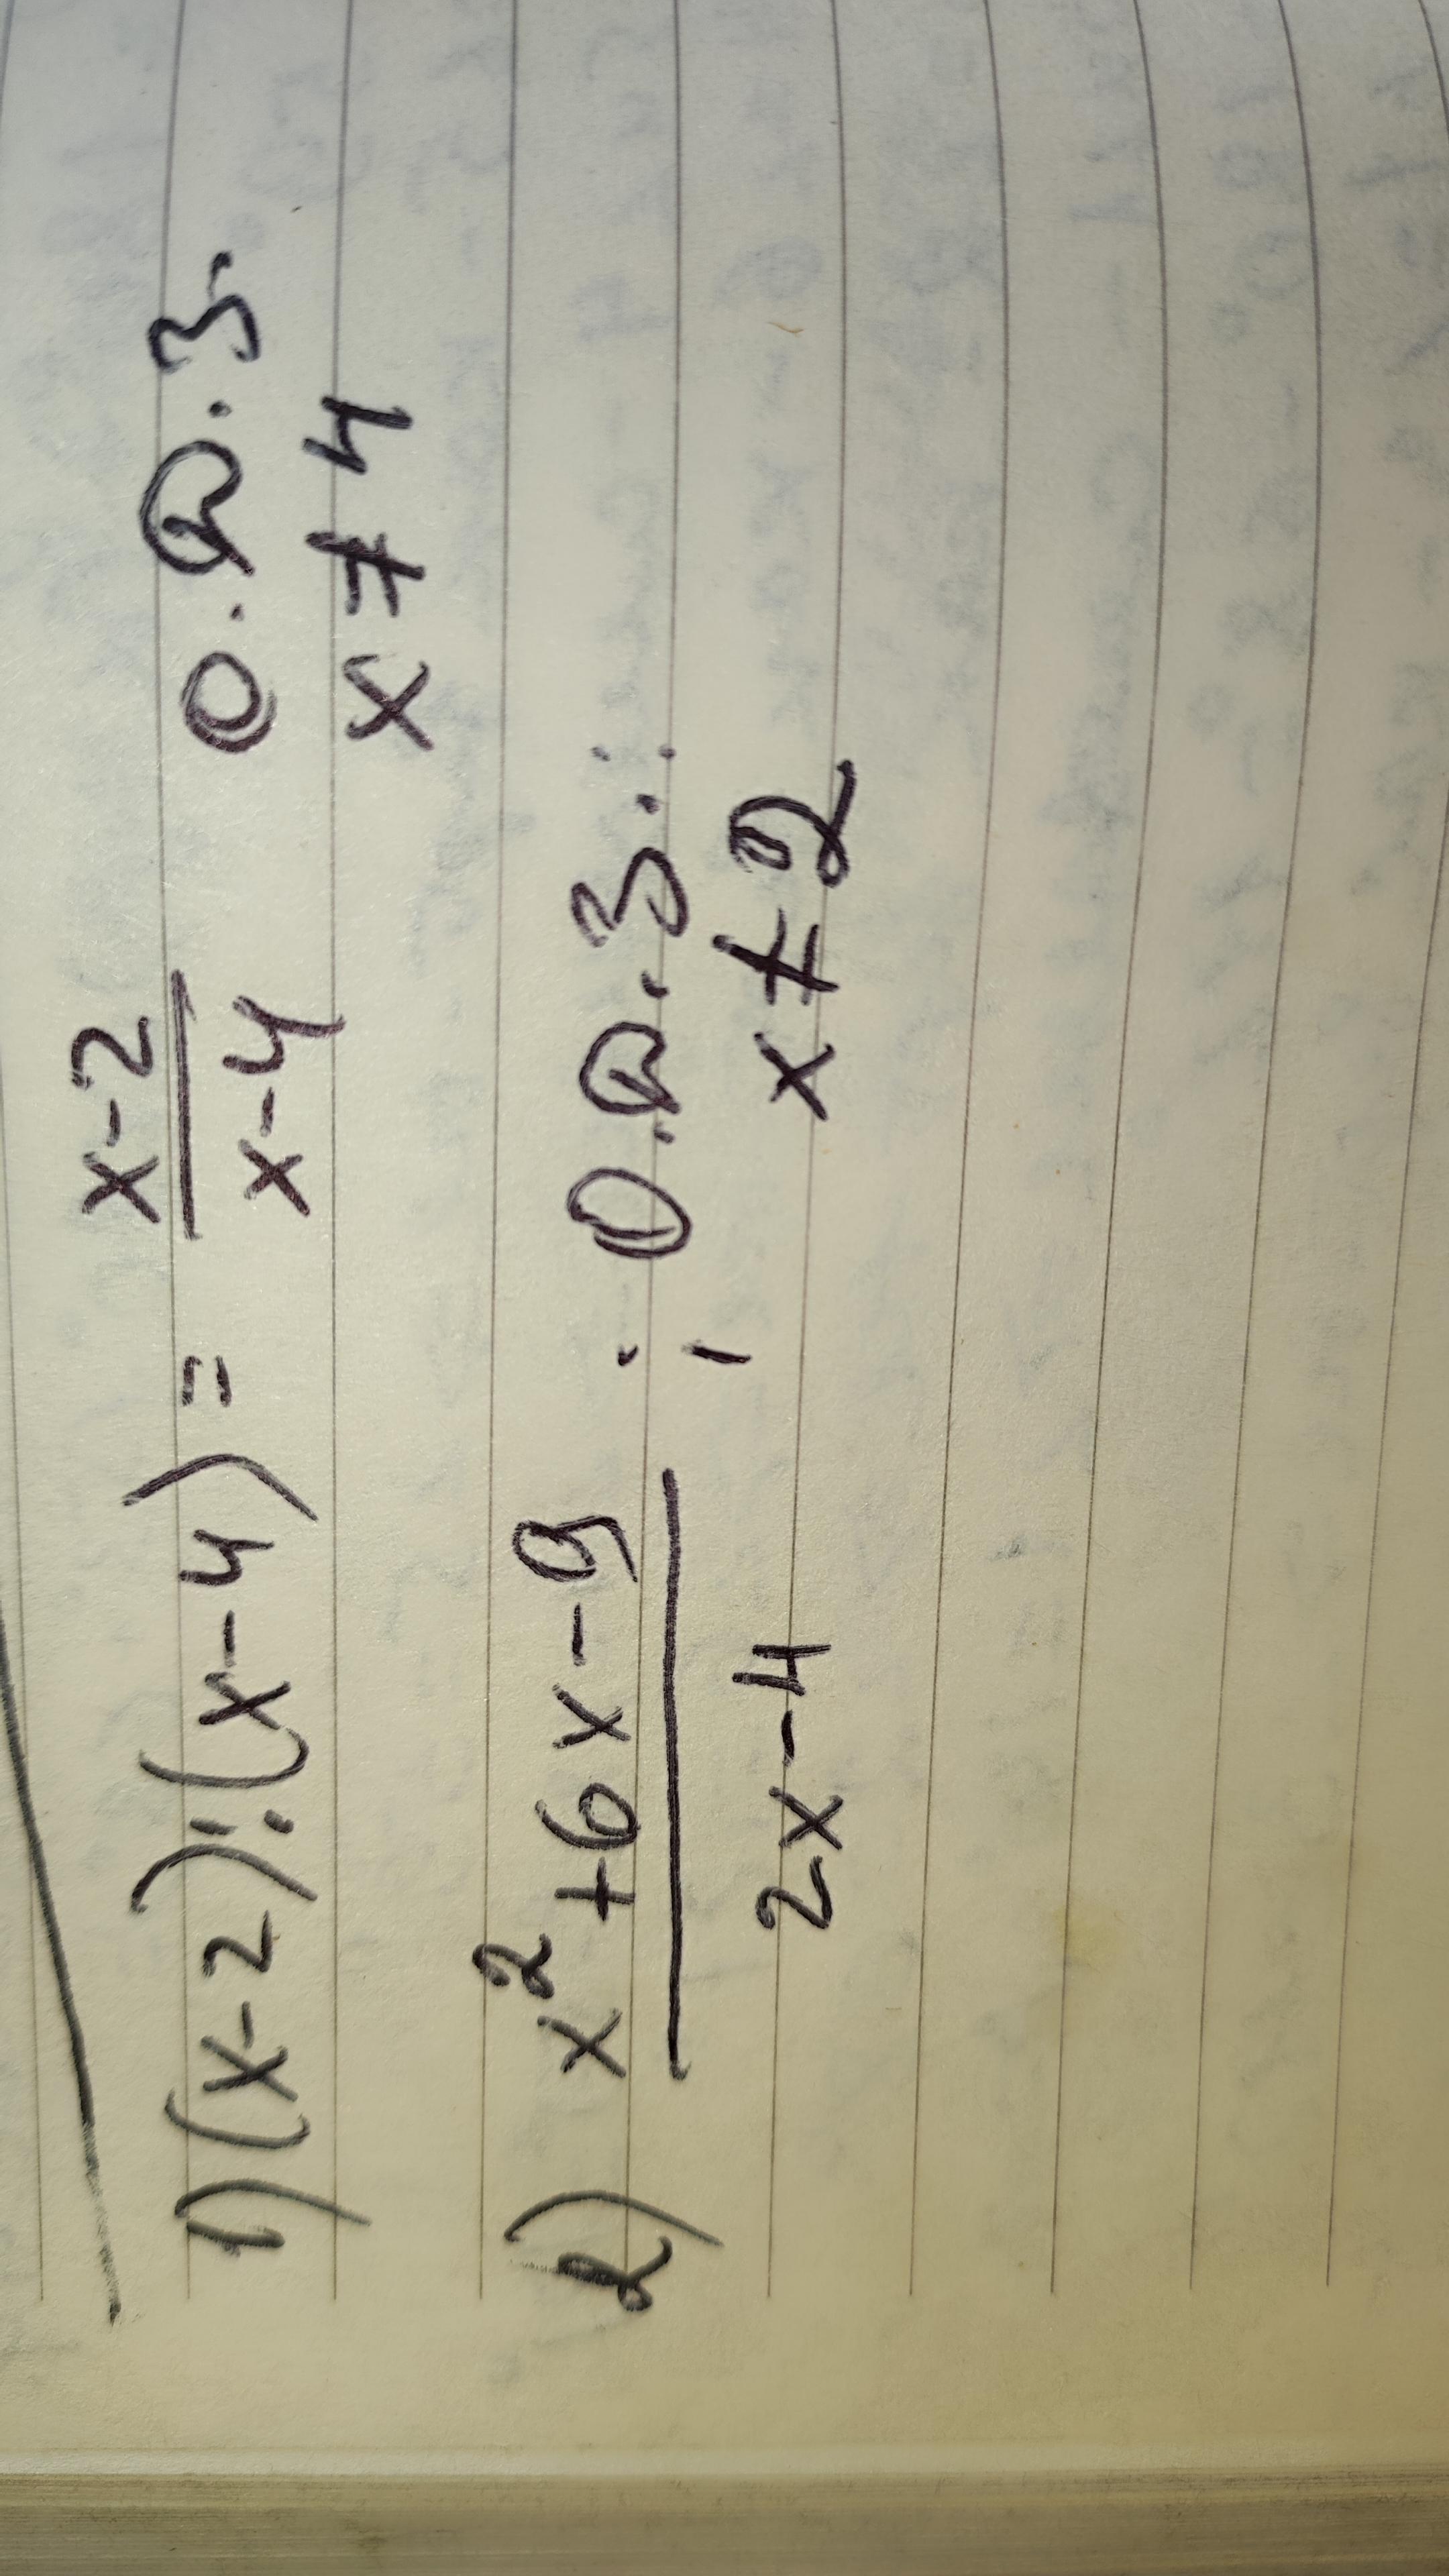 1) (x-2):(x-4) = x-2/x-4 О.Д.З.
x ≠ 4
2) x²+6x-9/2x-4 ; О.Д.З.:
x ≠ 2